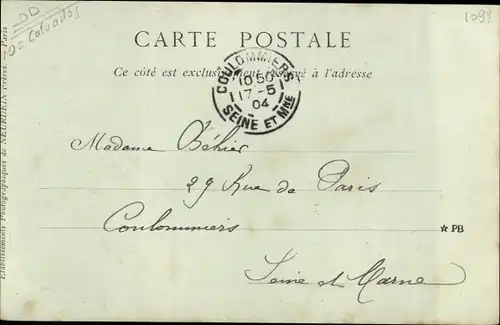 DD
Calvados
1099
CARTE POSTALE
Ce côté est exclusivement réservé à l'adresse
COULOMMIERS
10 50
17-5
04
SEINE ET MNE
Madame Béhier
29 Rue de Paris
Coulommiers
☆ PB
Seine et Marne
Etablissements Photographiques de NEURDEIN frères. Paris